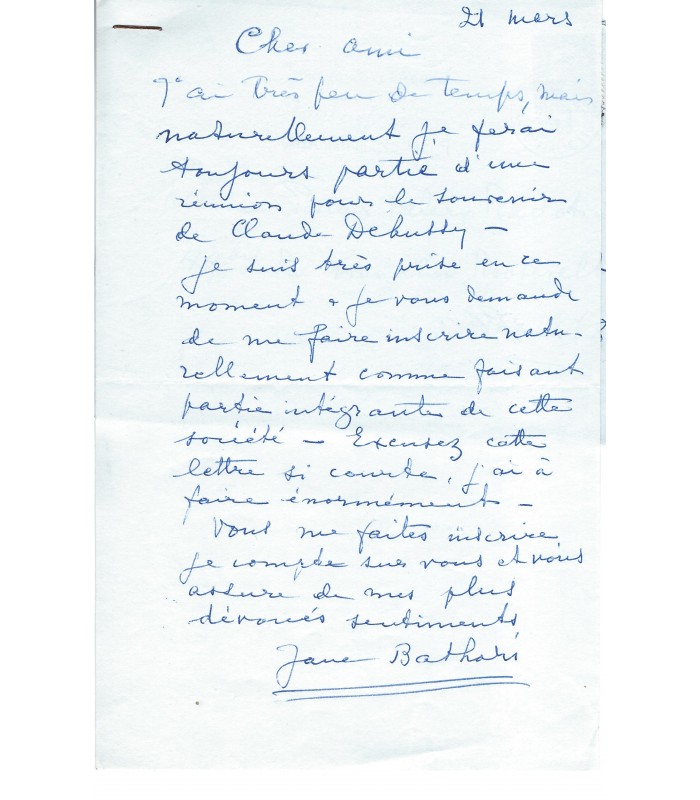 21 mars
Cher ami
J'ai très peu de temps, mais
naturellement je ferai
toujours partie d'une
réunion pour le souvenir
de Claude Debussy –
je suis très prise en ce
moment & je vous demande
de me faire inscrire natu-
rellement comme faisant
partie intégrante de cette
société – Excusez cette
lettre si courte, j'ai à
faire énormément –
Vous me faites inscrire,
je compte sur vous et vous
assure de mes plus
dévoués sentiments
Jane Bathori